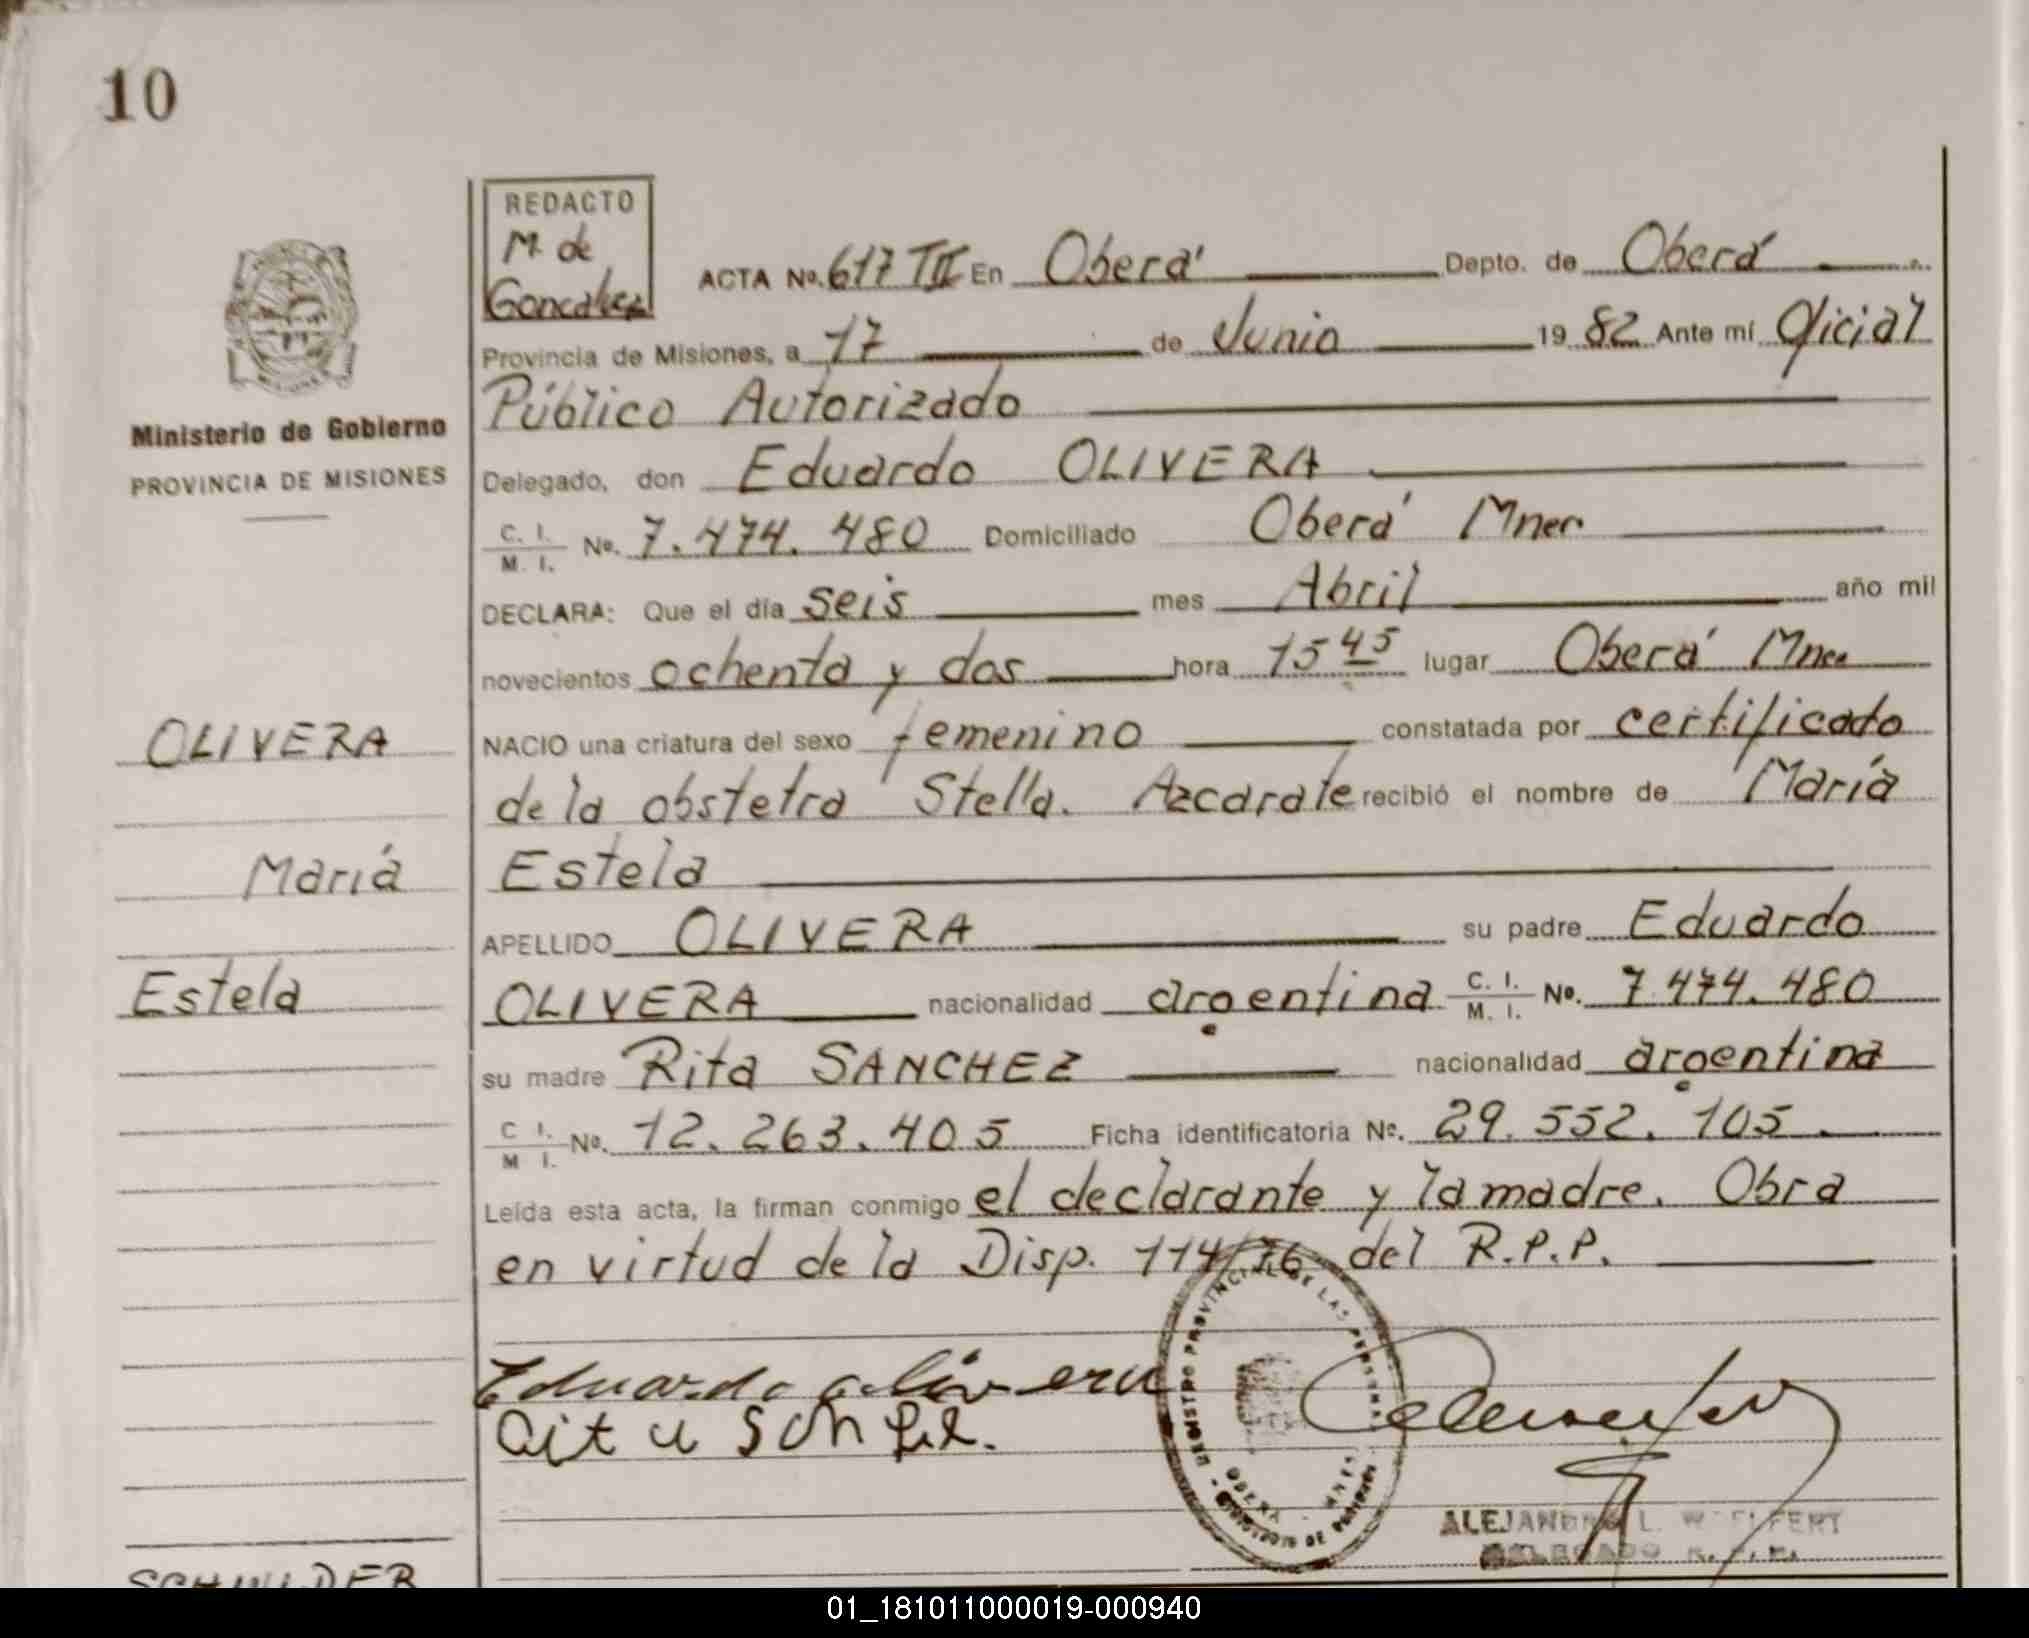 10
REDACTO
M. de
Goncalvez
ACTA Nº. 617 TII En Oberá Depto. de Oberá
Provincia de Misiones, a 17 de Junio 1982 Ante mí Oficial
Público Autorizado
Ministerio de Gobierno
PROVINCIA DE MISIONES
Delegado, don Eduardo OLIVERA
C. I. / M. I. Nº. 7.474.480 Domiciliado Oberá Mnes
DECLARA: Que el día seis mes Abril año mil
novecientos ochenta y dos hora 15 45 lugar Oberá Mnes
OLIVERA
NACIO una criatura del sexo femenino constatada por certificado
de la obstetra Stella. Azcarate recibió el nombre de María
María
Estela
APELLIDO OLIVERA su padre Eduardo
Estela
OLIVERA nacionalidad argentina C. I. / M. I. Nº. 7.474.480
su madre Rita SANCHEZ nacionalidad argentina
C I. / M I. Nº. 12.263.405 Ficha identificatoria Nº. 29.552.105.
Leída esta acta, la firman conmigo el declarante y la madre. Obra
en virtud de la Disp. 114/76 del R.P.P.
REGISTRO PROVINCIAL DE LAS PERSONAS
OBERA
Eduardo olivera
ALEJANDRO L. W
DELEGADO R. P. P.
01_181011000019-000940